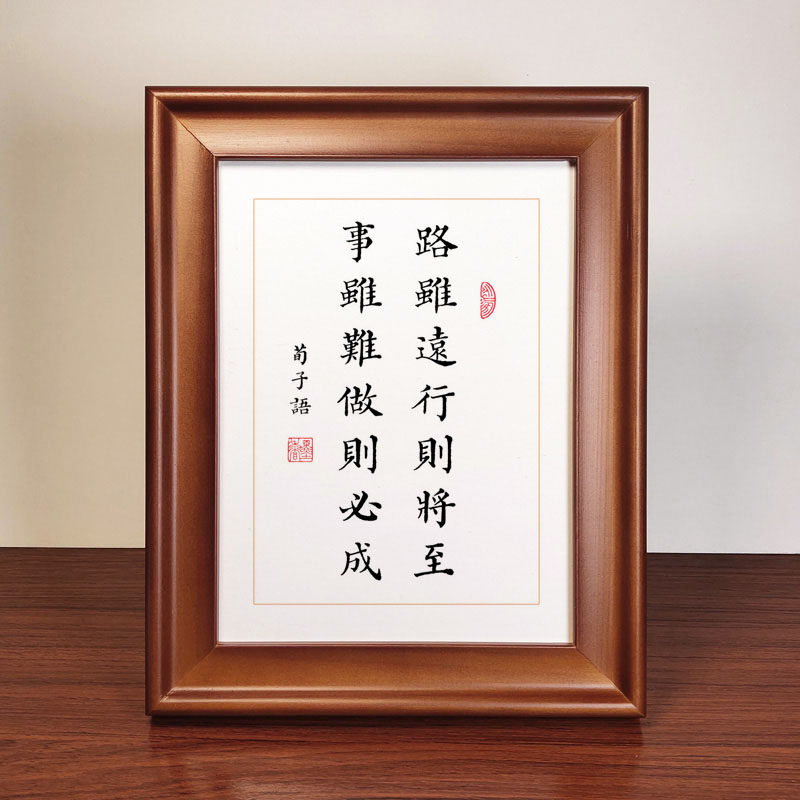 路雖遠行則將至
事雖難做則必成
荀子語